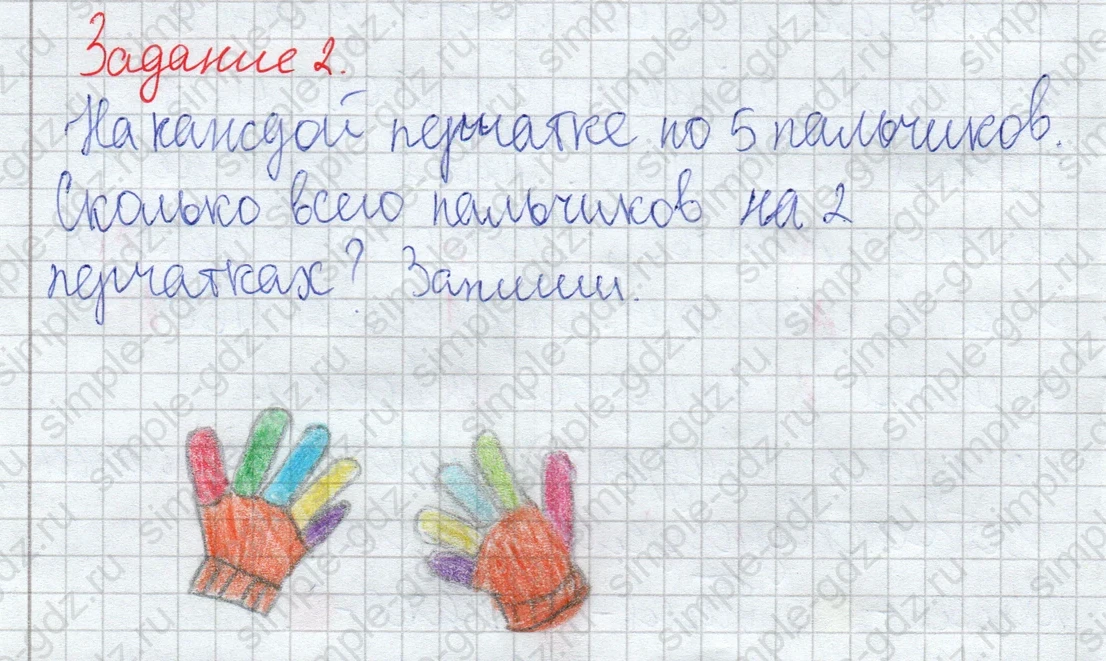 Задание 2.
На каждой перчатке по 5 пальчиков.
Сколько всего пальчиков на 2
перчатках? Запиши.
simple-gdz.ru